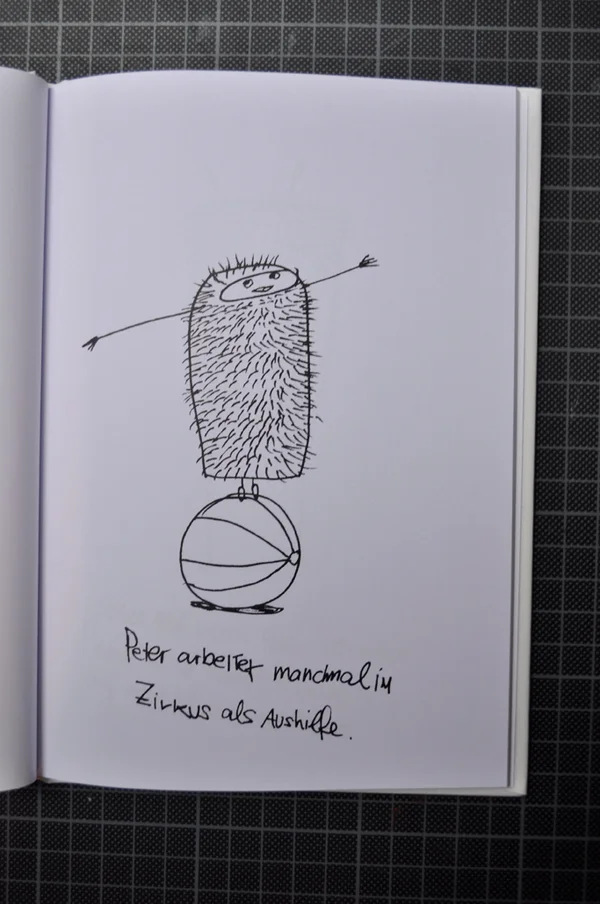 Peter arbeitet manchmal im
Zirkus als Aushilfe.